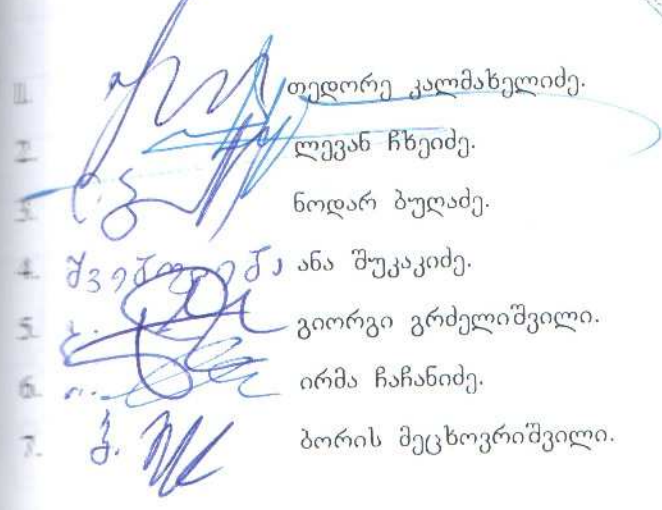 1. თედორე კალმახელიძე.
2. ლევან ჩხეიძე.
3. ნოდარ ბუღაძე.
4. ანა შუკაკიძე.
5. გიორგი გრძელიშვილი.
6. ირმა ჩაჩანიძე.
7. ბორის მეცხოვრიშვილი.